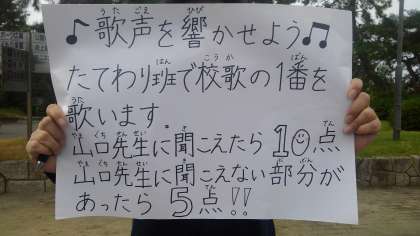 ♪歌声を響かせよう♪
たてわり班で校歌の1番を
歌います。
山口先生に聞こえたら10点
山口先生に聞こえない部分が
あったら5点!!